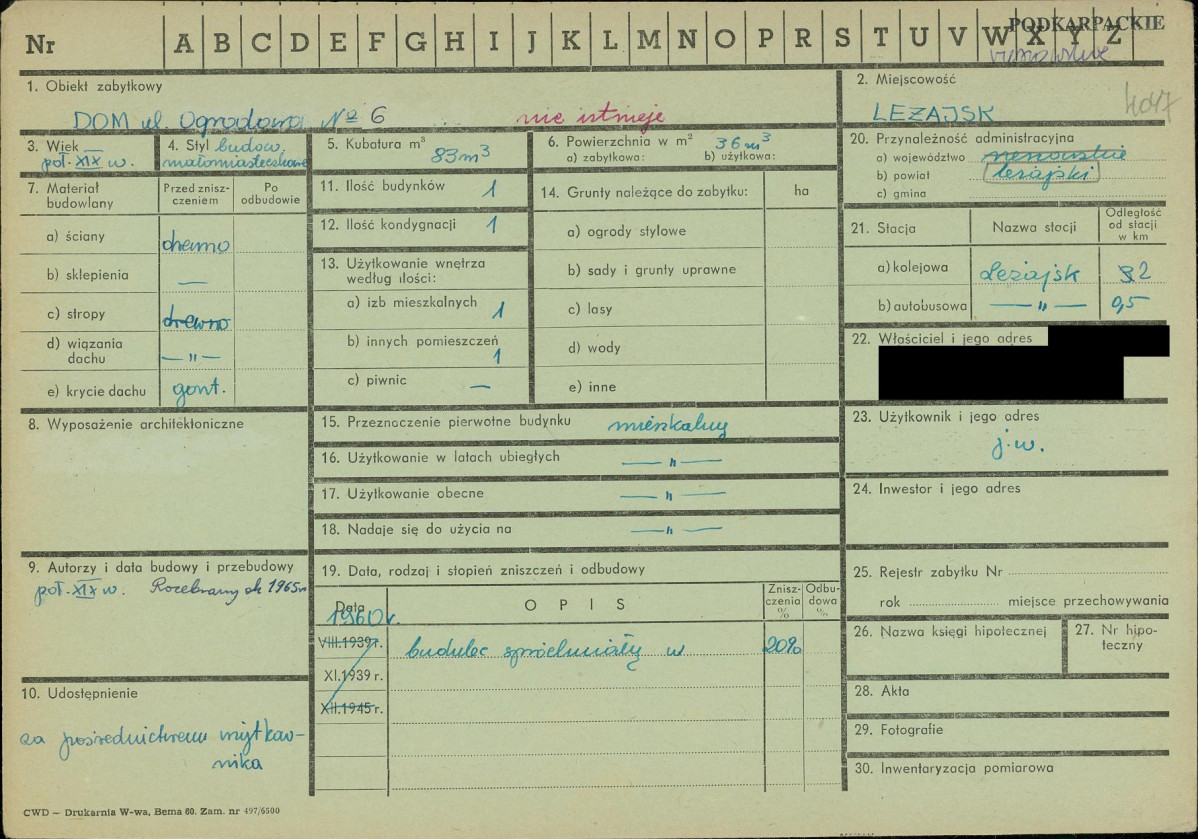 PODKARPACKIE
Nr A B C D E F G H I J K L M N O P R S T U V W X Y Z
1. Obiekt zabytkowy
DOM ul. Ogrodowa Nº 6 nie istnieje
2. Miejscowość
LEŻAJSK
3. Wiek
poł. XIX w.
4. Styl budow.
małomiasteczkowe
5. Kubatura m³
83 m³
6. Powierzchnia w m²
36 m³
a) zabytkowa: b) użytkowa:
20. Przynależność administracyjna
a) województwo
b) powiat leżajski
c) gmina
7. Materiał budowlany
Przed zniszczeniem
Po odbudowie
a) ściany drewno
b) sklepienia —
c) stropy drewno
d) wiązania dachu — „ —
e) krycie dachu gont.
11. Ilość budynków 1
12. Ilość kondygnacji 1
13. Użytkowanie wnętrza według ilości:
a) izb mieszkalnych 1
b) innych pomieszczeń 1
c) piwnic —
14. Grunty należące do zabytku: ha
a) ogrody stylowe
b) sady i grunty uprawne
c) lasy
d) wody
e) inne
21. Stacja Nazwa stacji Odległość od stacji w km
a) kolejowa Leżajsk 2
b) autobusowa — „ — 0,5
22. Właściciel i jego adres
8. Wyposażenie architektoniczne
15. Przeznaczenie pierwotne budynku mieszkalny
16. Użytkowanie w latach ubiegłych — „ —
17. Użytkowanie obecne — „ —
18. Nadaje się do użycia na — „ —
23. Użytkownik i jego adres
j.w.
24. Inwestor i jego adres
9. Autorzy i data budowy i przebudowy
poł. XIX w. Rozebrany ok 1965 r
19. Data, rodzaj i stopień zniszczeń i odbudowy
Data OPIS Zniszczenia % Odbudowa %
1960 r.
VIII.1939 r. budulec spróchniały w 20%
XI.1939 r.
XII.1945 r.
25. Rejestr zabytku Nr
rok miejsce przechowywania
26. Nazwa księgi hipotecznej
27. Nr hipoteczny
28. Akta
29. Fotografie
30. Inwentaryzacja pomiarowa
10. Udostępnienie
za pośrednictwem użytkow-
nika
CWD — Drukarnia W-wa, Bema 60. Zam. nr 497/6500